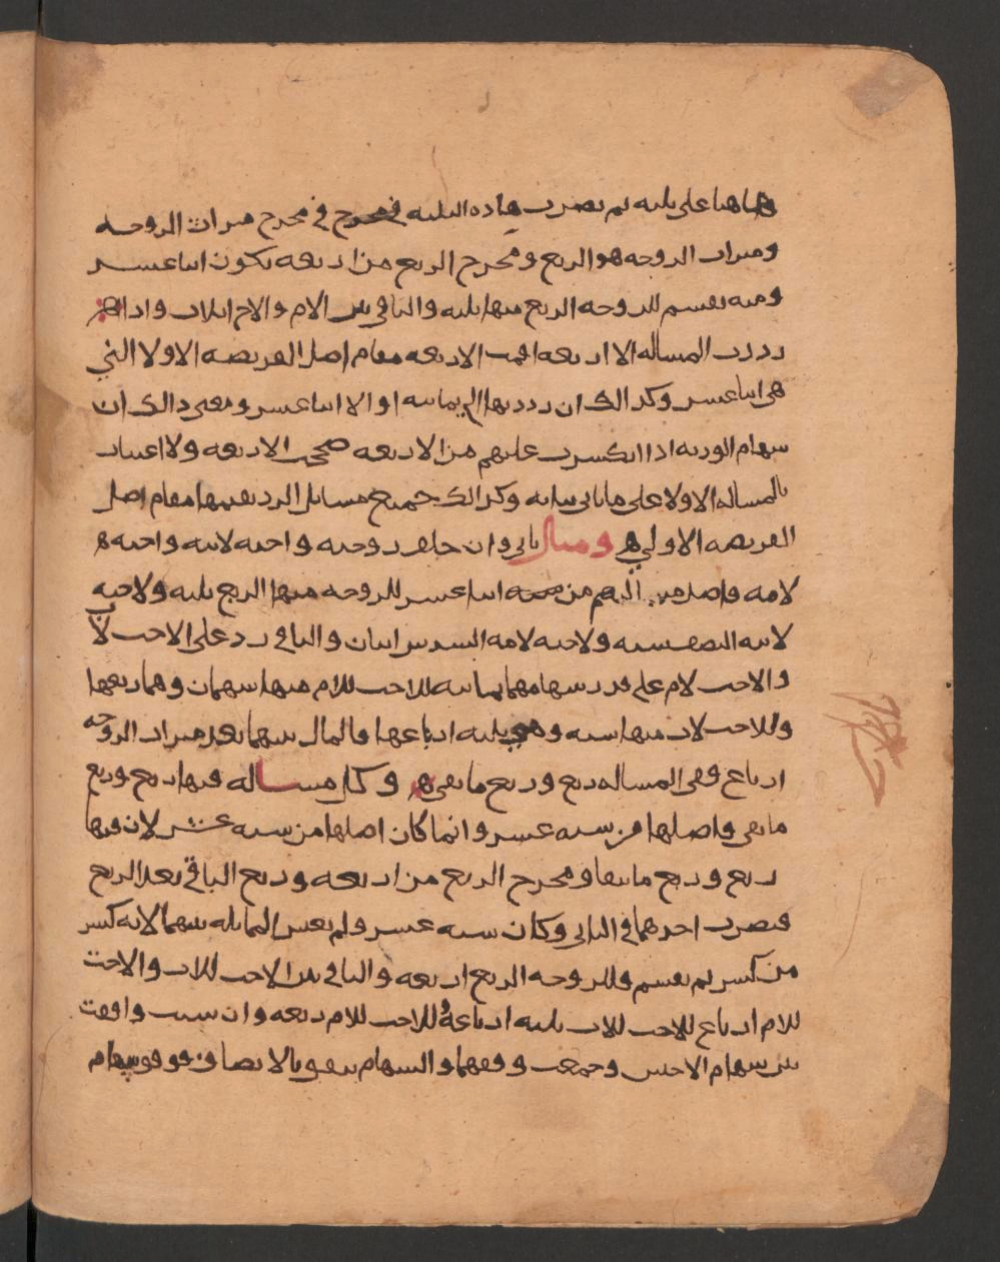 هاهنا على ثلثه ثم تضرب هاذه الثلثه في مخرج ميراث الزوجه
وميراث الزوجه هو الربع ومخرج الربع من اربعه يكون اثنا عشر
ومنه تقسم للزوجه الربع منها ثلثه والباقي بين الام والاخ اثلاث واذا
رددت المساله الا اربعه اقمت الاربعه مقام اصل الفريضه الاولا التي
هي اثنا عشر وكذالك ان رددتها الى ثمانيه او الا اثنا عشر ومعنى ذالك ان
سهام الورثه اذا انكسرت عليهم من الاربعه صححت الاربعه ولا اعتبار
بالمساله الاولا على ما ياتي بيانه وكذالك جميع مسائل الرد تقيمها مقام اصل
الفريضه الاولي ه ومثال ثاني وان خلف زوجته واخته لابيه واخته
لامه فاصل من اثنا عشر للزوجه منها الربع ثلثه ولاخته
لابيه النصف سته ولاخته لامه السدس اثنان والباقي رد على الاخت لاب
والاخت لام على قدر سهامهما ثمانيه للاخت للام منها سهمان وهما ربعها
وللاخت لاب منها سته وهي ثلثه ارباعها فالمال بينهما بعد ميراث الزوجه
ارباع ففي المساله ربع وربع ما بقي ه وكل مساله فيها ربع وربع
ما بقي فاصلها من سته عشر وانما كان اصلها من سته عشر لان فيها
ربع وربع ما بقا ومخرج الربع من اربعه وربع الباقي بعد الربع
فضرب احدهما في الثاني وكان سته عشر ولم يعتبر المماثله بينهما لانه كسر
من كسر ثم تقسم فللزوجه الربع اربعه والباقي بين الاخت للاب والاخت
للام ارباع للاخت للاب ثلثه ارباعه وللاخت للام ربعه وان شيت وافقت
بين سهام الاختين وجمعت وفقهما والسهام يتفق بالانصاف فوفق سهام